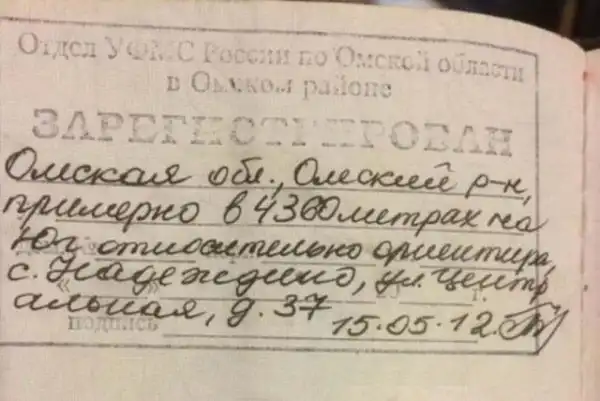 Отдел УФМС России по Омской области
в Омском районе
ЗАРЕГИСТРИРОВАН
Омская обл., Омский р-н,
примерно в 4360 метрах на
Юг относительно ориентира
с. Надеждино, ул. Центр
альная, д. 37
подпись 15.05.12.